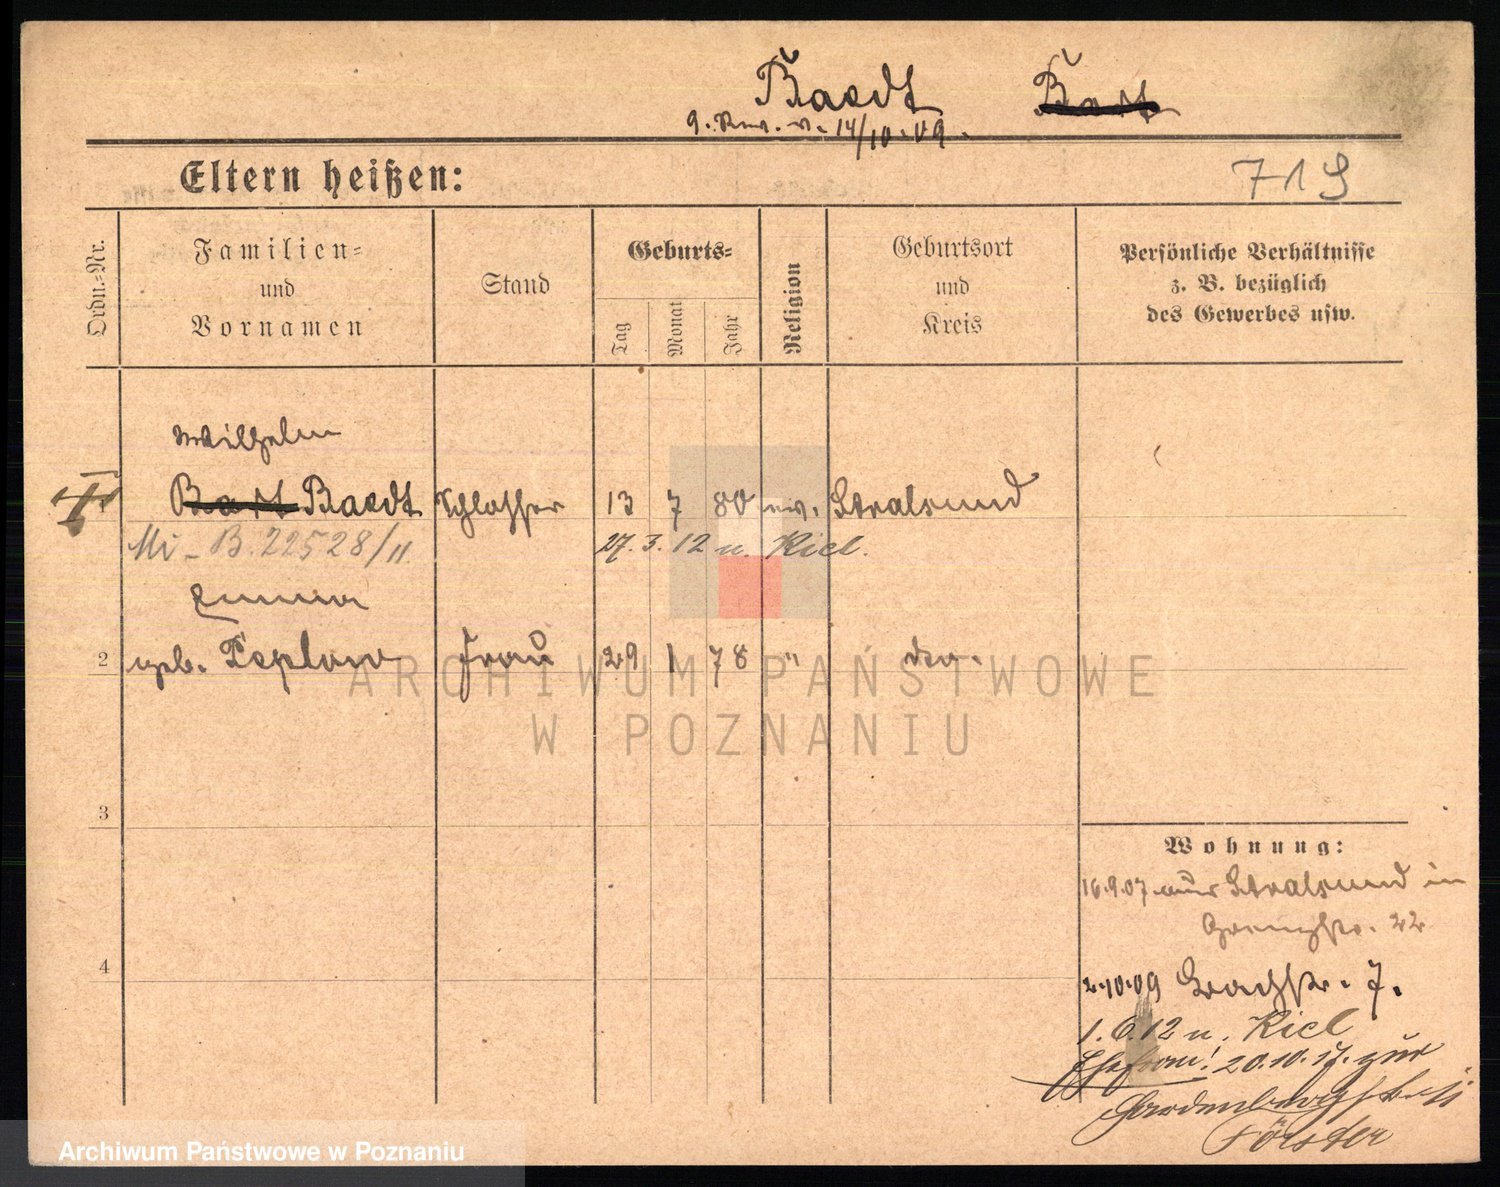 Baedt Bart
9. Rev. v. 14/10.09.
Eltern heißen:
719
Ordn.-Nr.
Familien-
und
Vornamen
Stand
Geburts-
Tag
Monat
Jahr
Religion
Geburtsort
und
Kreis
Persönliche Verhältnisse
z. B. bezüglich
des Gewerbes usw.
Wilhelm
Bart Baedt Schlosser 13 7 80 ev. Stralsund
Mi - B. 22528/11. 27. 3. 12 n. Kiel.
Emma
2 geb. Teplow Frau 29 1 78 " do.
3
4
Wohnung:
16.9.07 aus Stralsund in
Grenzstr. 22
2.10.09 Bachstr. 7.
1. 6. 12 n. Kiel
Ehefrau! 20.10.17. zur
Hardenbergstr. 11
Förster
ARCHIWUM PAŃSTWOWE
W POZNANIU
Archiwum Państwowe w Poznaniu